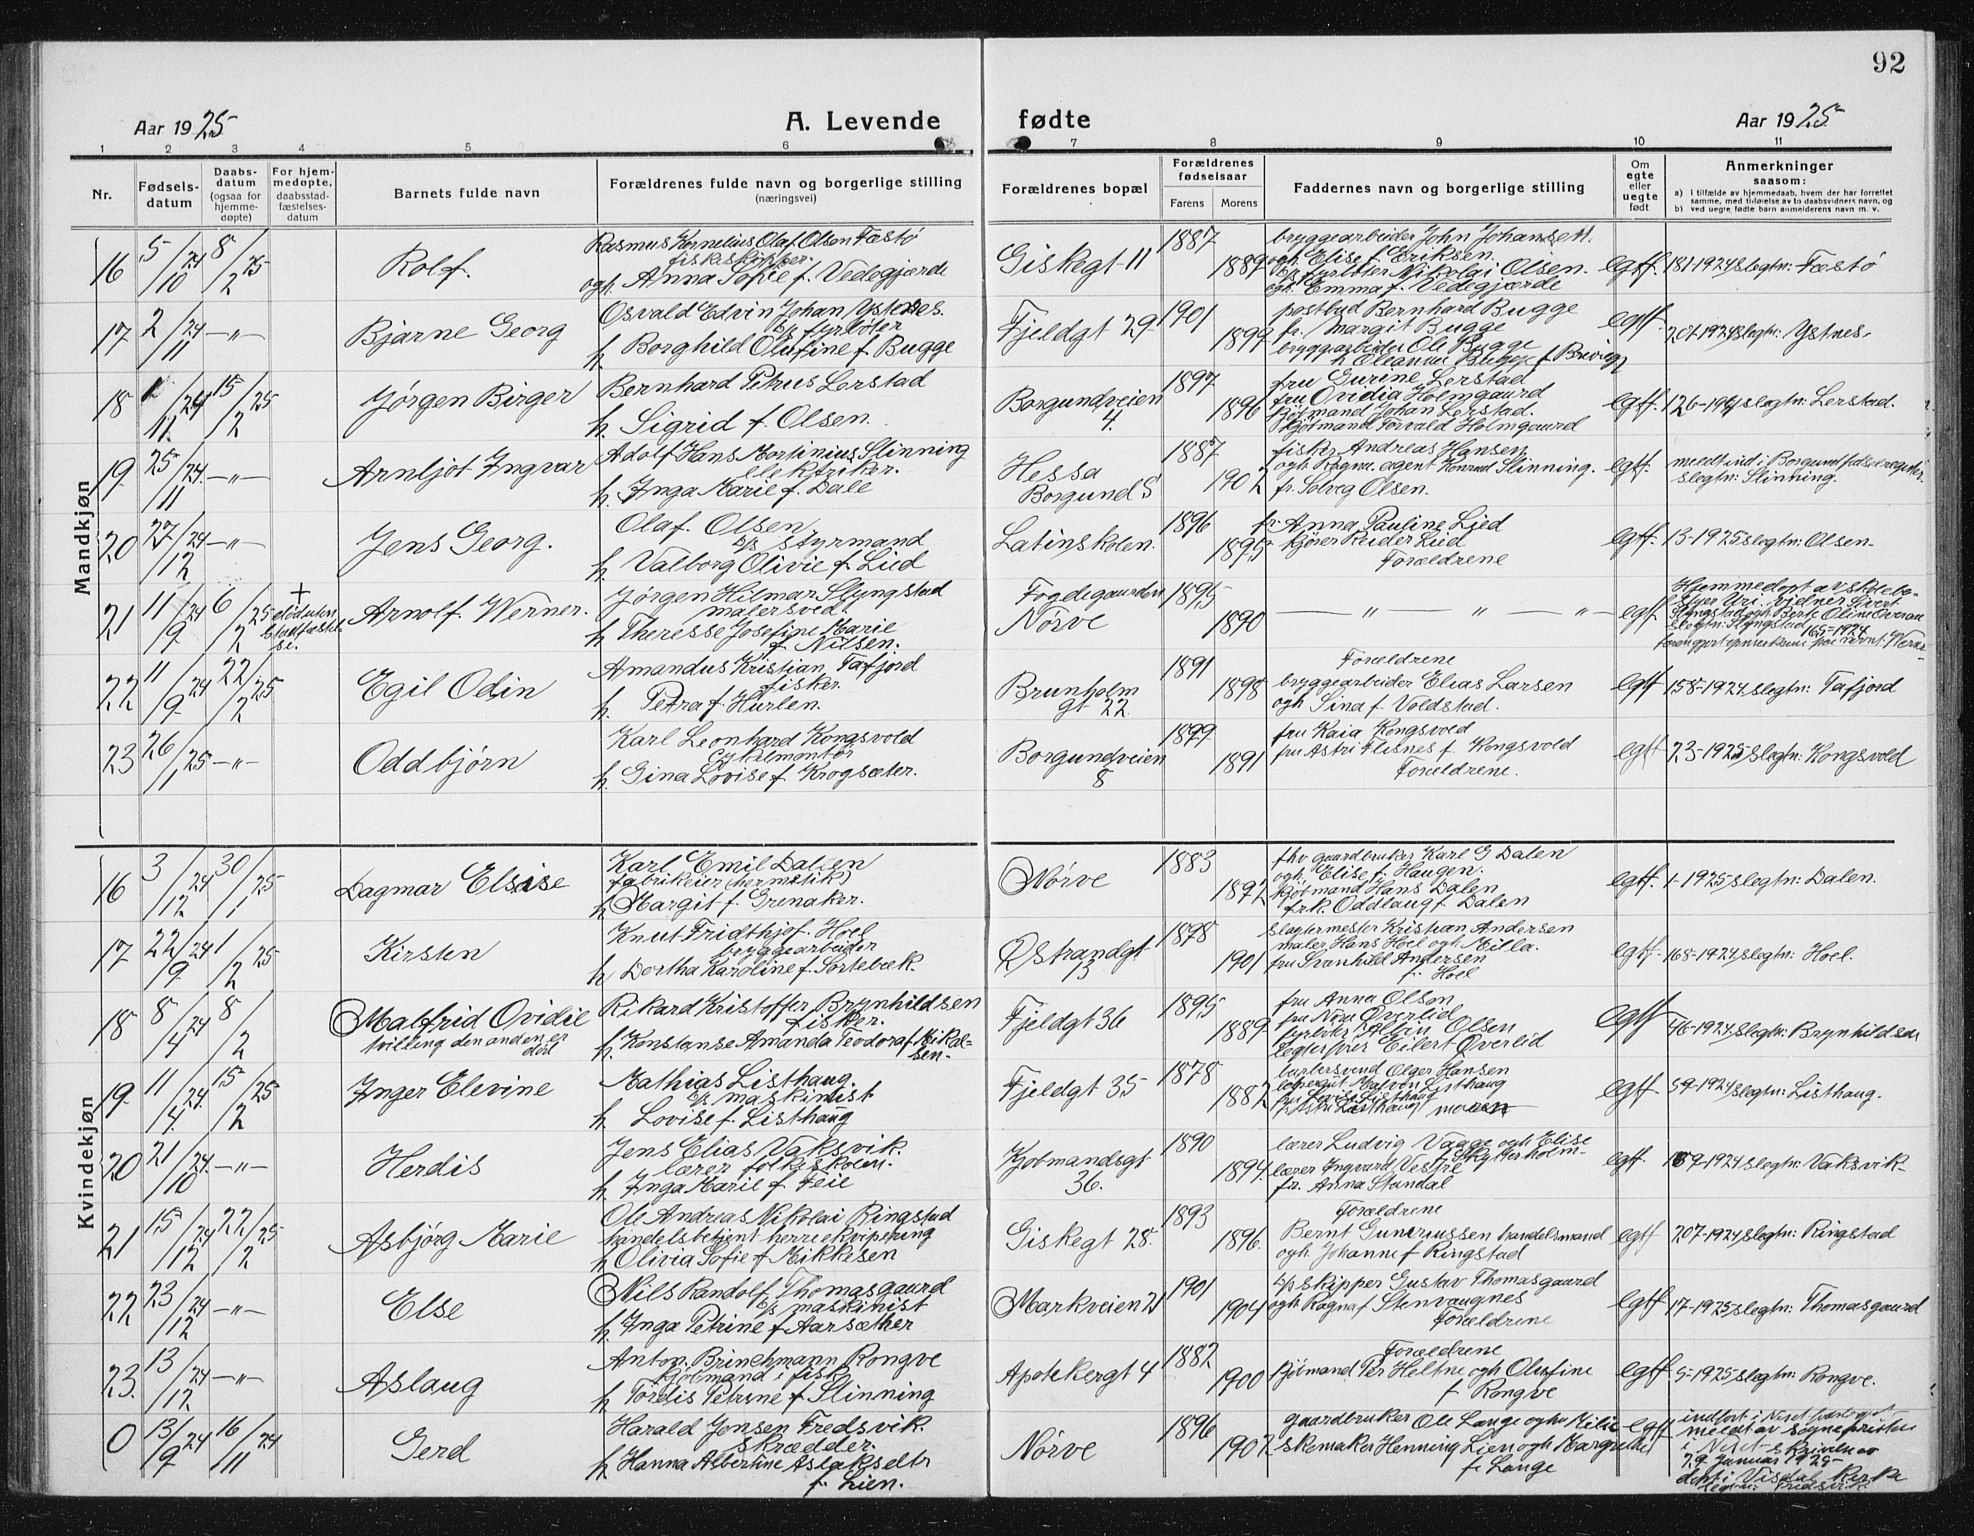 92
Aar 1925
A. Levende fødte
Aar 1925
1 2 3 4 5 6 7 8 9 10 11
Nr.
Fødsels-
datum
Daabs-
datum
(ogsaa for
hjemme-
døpte)
For hjem-
medøpte,
daabsstad-
fæstelses-
datum
Barnets fulde navn
Forældrenes fulde navn og borgerlige stilling
(næringsvei)
Forældrenes bopæl
Forældrenes
fødselsaar
Farens Morens
Faddernes navn og borgerlige stilling
Om
egte
eller
uegte
født
Anmerkninger
saasom:
a) I tilfælde av hjemmedaab, hvem der har forrettet
samme, med tilføielse av to daabsvidners navn, og
b) ved uegte fødte barn anmelderens navn m. v.
Mandkjøn
16 5/10 24 8/2 25 Rolf.
Rasmus Kornelius Olaf Olsen Fæstø
fiskeskipper.
ogh. Anna Sofie f. Vedegjærde
Giskegt 11 1887 1889
bryggearbeider John Johansen.
ogh. Elise f. Eriksen.
fyrbøter Nikolai Olsen.
ogh. Emma f. Vedegjærde
egtf. 181-1924 slegtn: Fæstø
17 2/11 24 —"— Bjarne Georg
Osvald Edvin Johan Ystenes.
fyrbøter
h. Borghild Olufine f Bugge
Fjeldgt 29 1901 1899
postbud Bernhard Bugge
fr. Margit Bugge
bryggarbeider Ole Bugge
egtf. 201-1924 slegtn: Ystnes.
18 11 24 15/2 25 Jørgen Birger
Bernhard Petrus Lerstad
h. Sigrid f. Olsen.
Borgundveien
4. 1897 1896
fru Gurine Lerstad
fru Ovidia Holmgaard
Kjøbmand Johan Lerstad.
Kjøbmand Torvald Holmgaard
egtf. slegtn: Lerstad.
19 25/11 24. —"— Arnljot Ingvar
Adolf Hans Martinius Slinning
elektriker.
h. Inga Marie f. Dale
Hessa
Borgund S 1887 1902
fisker Andreas Hansen
ogh. Ragna. agent Konrad Slinning.
fr. Solveg Olsen.
egtf. meldt ind i Borgund
slegtn: Slinning.
20 27/12 24 —"— Jens Georg.
Olaf Olsen
styrmand
h. Valborg Olivie f Lied
Latinskolen. 1896 1895
fr. Anna Pauline Lied
kjører Reider Lied
Forældrene
egtf. 13-1925 slegtn: Olsen
21 11/9 24 6/2 25 Arnolf Werner.
Jørgen Hilmar Slyngstad
malersvend.
h. Theresse Josefine Marie
f Nilsen.
Fogdegaarden
Nørve 1895 1890
— " — " — " —
egtf.
22 11/9 24 22/2 25 Egil Odin
Amandus Kristian Tafjord
fisker.
h. Petra f. Hurlen.
Brunholm
gt 22 1891 1898
Forældrene
bryggearbeider Elias Larsen
ogh Sina f. Voldstad.
egtf 158-1924 slegtn: Tafjord
23 26/1 25 —"— Oddbjørn
Karl Leonhard Kongsvold
Cykkelmontør
h. Gina Lovise f. Krogsæter.
Borgundveien
8 1899 1891
fru Kaia Kongsvold
fru Astri Flisnes f. Kongsvold
Forældrene.
egtf 23-1925 slegtn: Kongsvold
Kvindekjøn
16 3/12 24 30/1 25 Dagmar Elsise
Karl Emil Dalen
fabrikeier (hermetik)
h. Margit f. Grenaker.
Nørve 1883 1892
fhv gaardbruker Karl G Dalen
ogh. Elise f. Haugen.
kjøbmand Hans Dalen
frk. Oddlaug f. Dalen
egtf. 1-1925 slegtn: Dalen.
17 22/9 24 1/2 25 Kirsten
Knut Fridthjof. Hoel
bryggearbeider
h Dortha Karoline f. Sortebæk.
Østrandgt
13 1898 1901
slagtermester Kristian Andersen
maler Hans Hoel ogh. Milla.
fru Svanhild Andersen
f. Hoel
egtf. 168-1924 slegtn: Hoel.
18 8/4 24 8/2 Malfrid Ovidie
tvilling den anden er
død
Rikard Kristoffer Brynhildsen
fisker.
h. Konstanse Amanda Teodora f. Mikal-
sen.
Fjeldgt 36 1895 1889
fru Anna Olsen
fru Nora Øverlid
Olsen
Eilert Øverlid
egtf 46-1924 slegtn: Brynhildsen
19 11/4 24. 15/2 25 Inger Elevine
Mathias Listhaug.
maskinist
h Lovise f. Listhaug
Fjeldgt 35 1878 1882
barbersvend Olger Hansen
Listhaug
egtf. 59-1924 slegtn: Listhaug.
20 21/10 24. —"— Herdis
Jens Elias Vaksvik.
lærer folkeskolen.
h. Inga Marie f Feie
Kjøbmandsgt
36. 1890 1894.
lærer Ludvig Vagge ogh. Elise
f. Skytterholm
lærer Ingvard Vestre
fr. Anna Standal
egtf. slegtn: Vaksvik
21 15/12 24 22/2 25 Asbjørg Marie
Ole Andreas Nikolai Ringstad
handelsbetjent herreekvippering
h Olivia Sofie f Mikkelsen
Giskegt 28. 1893 1896.
Forældrene
Bernt Gunerius handelsmand
ogh. Johanne f Ringstad
egtf 207-1924 slegtn: Ringstad
22 23/12 24 —"— Else
Nils Randolf Thomasgaard
maskinist
h. Inga Petrine f Aarsæther
Markveien 21 1901 1904
skipper Gustav Thomasgaard
ogh. Ragna f Stenvaagnes
Forældrene
egtf 17-1925 slegtn: Thomasgaard
23. 13/12 24 —"— Aslaug
Anton. Brinchmann Rongve
kjøbmand i fisk
h Tordis Petrine f Slinning
Apotekergt 4 1882 1900
Forældrene
kjøbmand Per Heltne ogh Olufine
f Rongve
egtf. 5-1925 slegtn: Rongve.
0 13/9 24 16/11 24 Gerd
Harald Jensen Fredsvik.
skrædder.
h Hanna Albertine Aslaksdtr
f. Lien.
Nørve 1896 1902
gaardbruker Ole Lange ogh Milie
skomaker Henning Lien ogh Margrethe
f. Lange
egtf indført i Neset
meldt av sognepresten
i Neset skrivelse av
29 januar 1925
døpt i Visdal kirke